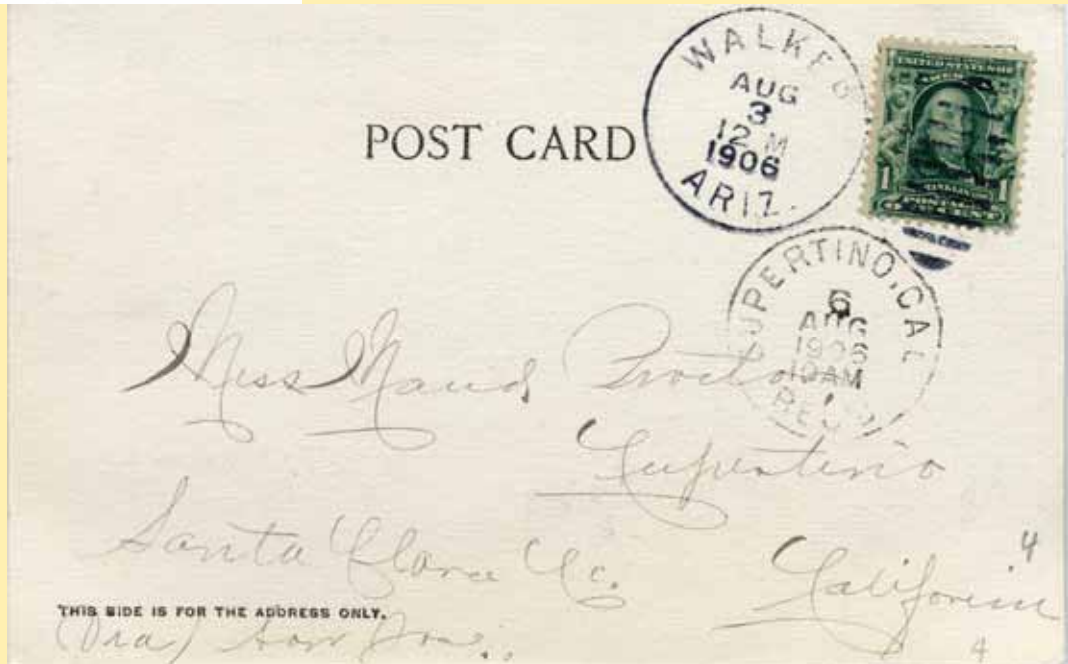 WALKER
AUG
3
12 M
1906
ARIZ.
UNITED STATES OF
AMERICA
1 1
FRANKLIN
POSTAGE
ONE CENT
POST CARD
CUPERTINO, CAL
6
AUG
1906
10 AM
REC'D
Miss Maud Proctor
Cupertino
Santa Clara Co.
California
4
THIS SIDE IS FOR THE ADDRESS ONLY.
(Via) San Jose.
4